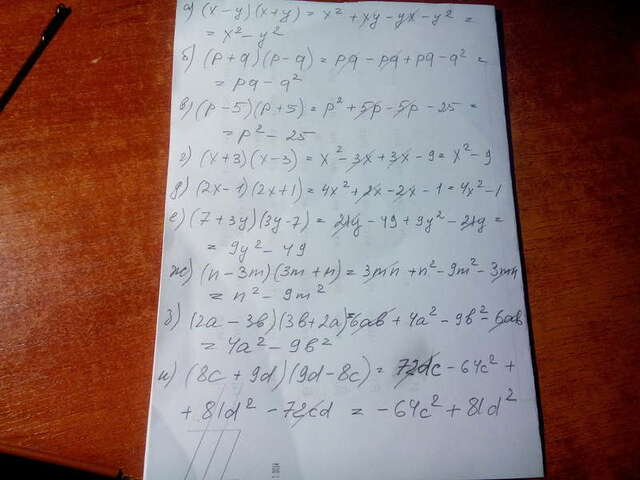 а) (x-y)(x+y) = x² + xy - yx - y² =
= x² - y²
б) (p+q)(p-q) = pq - pq + pq - q² =
= pq - q²
в) (p-5)(p+5) = p² + 5p - 5p - 25 =
= p² - 25
г) (x+3)(x-3) = x² - 3x + 3x - 9 = x² - 9
д) (2x-1)(2x+1) = 4x² + 2x - 2x - 1 = 4x² - 1
е) (7+3y)(3y-7) = 21y - 49 + 9y² - 21y =
= 9y² - 49
ж) (n-3m)(3m+n) = 3mn + n² - 9m² - 3mn
= n² - 9m²
з) (2a-3b)(3b+2a) = 6ab + 4a² - 9b² - 6ab
= 4a² - 9b²
и) (8c+9d)(9d-8c) = 72dc - 64c² +
+ 81d² - 72cd = -64c² + 81d²